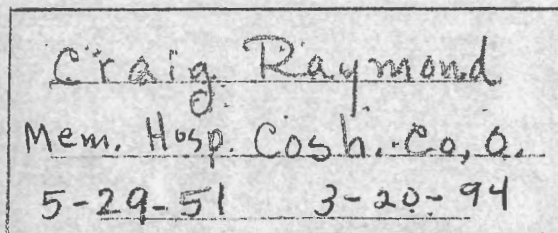 Craig Raymond
Mem. Hosp. Cosh. Co, O.
5-29-51 3-20-94